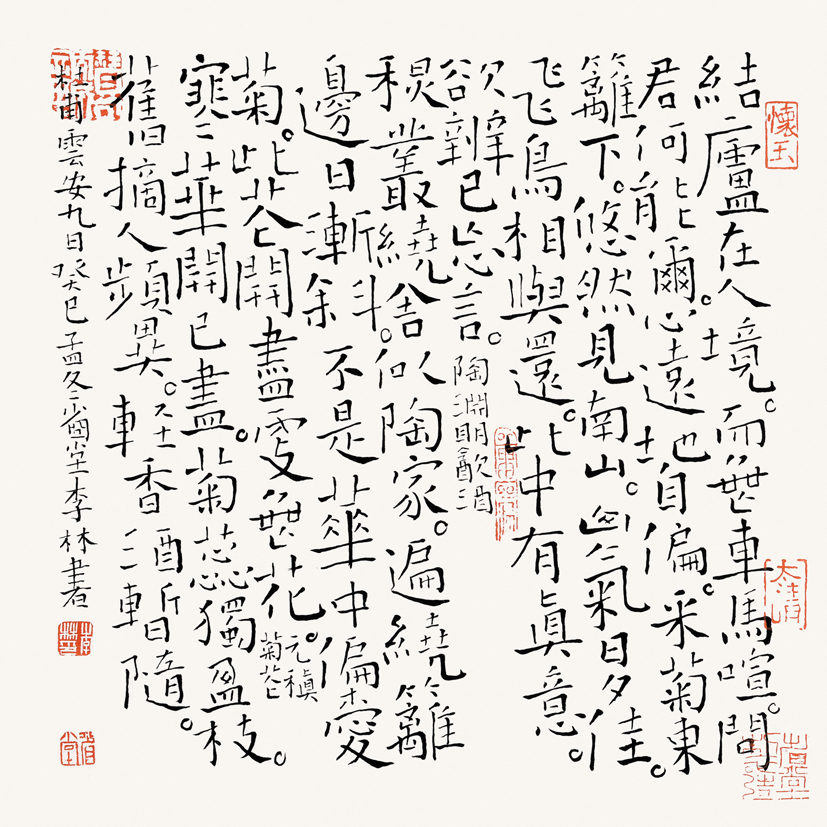 結廬在人境。而無車馬喧。問
君何能爾。心遠地自偏。采菊東
籬下。悠然見南山。山氣日夕佳。
飛鳥相與還。此中有真意。
欲辯已忘言。
陶淵明飲酒
秋叢繞舍似陶家。遍繞籬
邊日漸斜。不是華中偏愛
菊。此花開盡更無花。
元稹
菊花
寒華開已盡。菊蕊獨盈枝。
舊摘人頻異。輕香酒暫隨。
杜甫雲安九日癸巳孟冬省堂李林書
懷玉
省堂